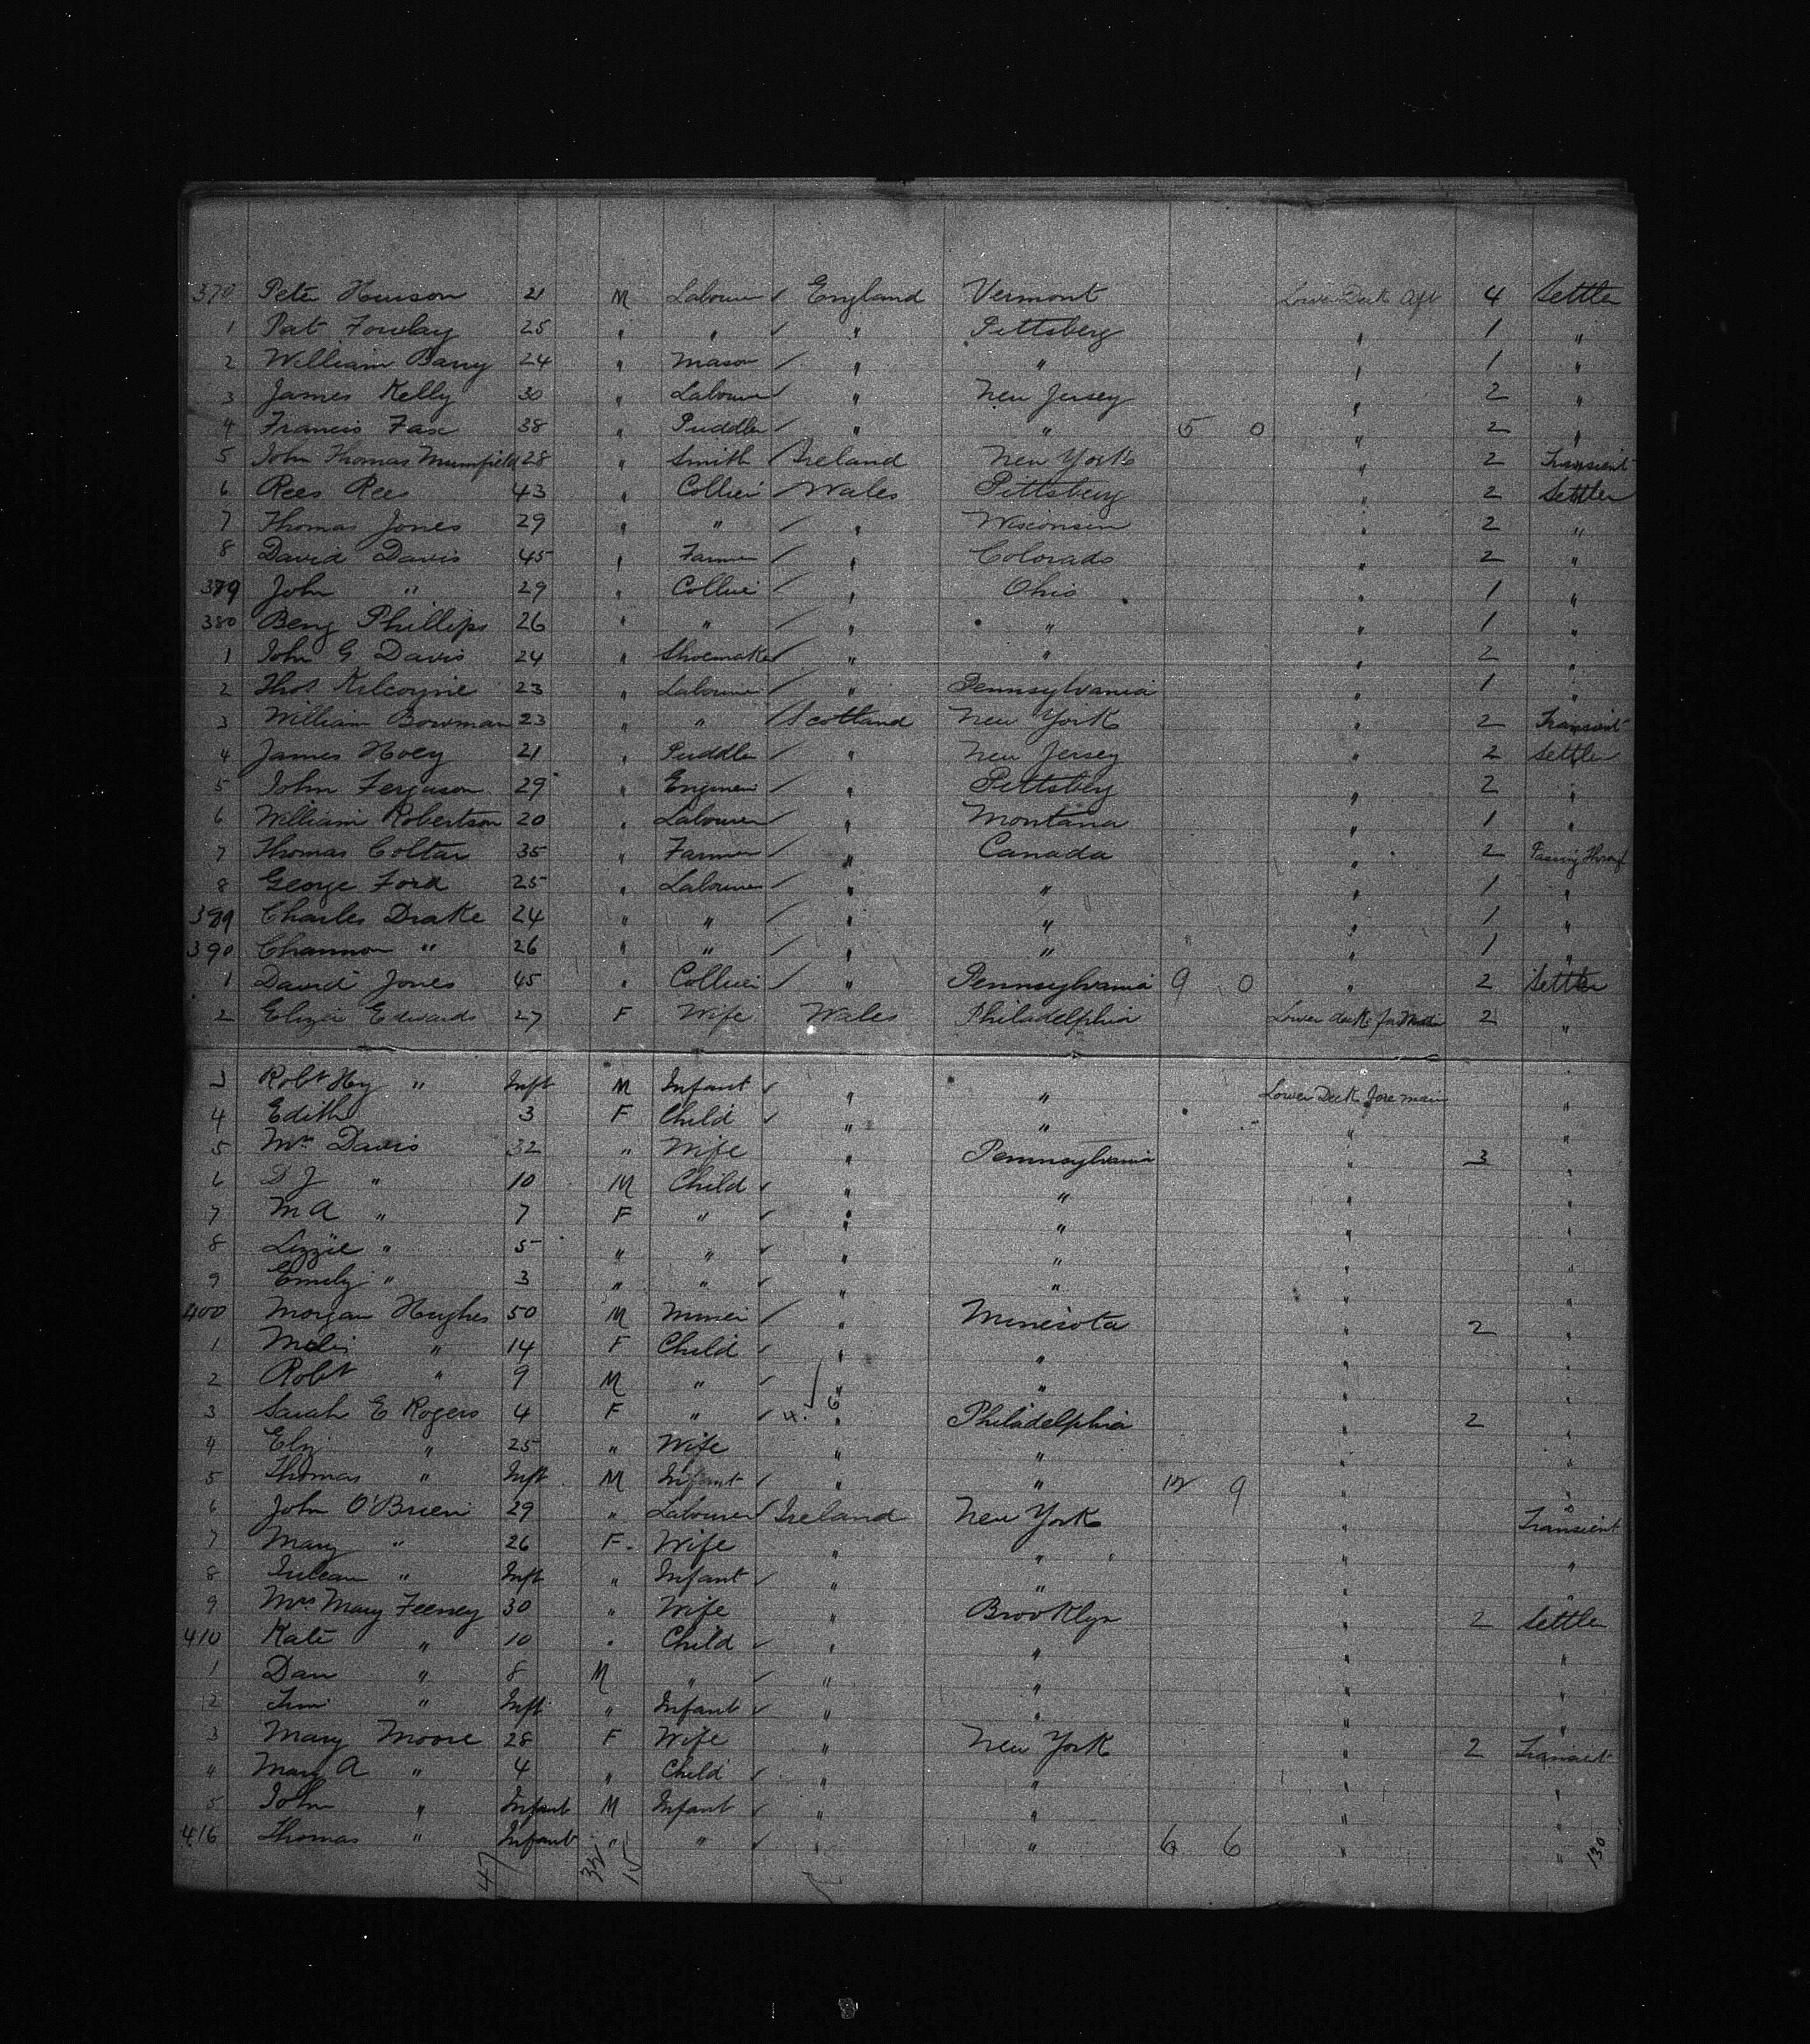 370 Pete Hewson 21 M Labourer ✓ England Vermont Lower Deck Aft 4 Settler
1 Pat Fowlay 25 " " ✓ " Pittsberg " 1 "
2 William Barry 24 " Mason ✓ " " " 1 "
3 James Kelly 30 " Labourer ✓ " New Jersey " 2 "
4 Francis Fax 38 " Puddler ✓ " " 5 0 " 2 "
5 John Thomas Mumfield 28 " Smith ✓ Ireland New York " 2 Transient
6 Rees Rees 43 " Collier ✓ Wales Pittsberg " 2 Settler
7 Thomas Jones 29 " " ✓ " Wisconsin " 2 "
8 David Davis 45 " Farmer ✓ " Colorado " 2 "
379 John " 29 " Collier ✓ " Ohio " 1 "
380 Benj Phillips 26 " " ✓ " " " 1 "
1 John G Davis 24 " Shoemaker ✓ " " " 2 "
2 Thos Kilcoyne 23 " Labourer ✓ " Pennsylvania " 1 "
3 William Bowman 23 " " ✓ Scotland New York " 2 Transient
4 James Hoey 21 " Puddler ✓ " New Jersey " 2 Settler
5 John Ferguson 29 " Engineer ✓ " Pittsbeg " 2 "
6 William Robertson 20 " Labourer ✓ " Montana " 1 "
7 Thomas Coltar 35 " Farmer ✓ " Canada " 2 Passing Through
8 George Ford 25 " Labourer ✓ " " " 1 "
389 Charles Drake 24 " " ✓ " " " 1 "
390 Channon " 26 " " ✓ " " " 1 "
1 David Jones 45 " Collier ✓ " Pennsylvania 9 0 " 2 Settler
2 Eliza Edwards 27 F Wife Wales Philadelphia Lower deck 2 "
3 Robt Hy " Inft M Infant ✓ " " Lower Deck fore main "
4 Edith 3 F Child ✓ " " " "
5 Mrs Davis 32 " Wife " Pennsylvania " 3 "
6 D J " 10 M Child ✓ " " " "
7 M A " 7 F " ✓ " " " "
8 Lizzie " 5 " " ✓ " " " "
9 Emily " 3 " " ✓ " " " "
400 Morgan Hughes 50 M Miner ✓ " Minesota " 2 "
1 " 14 F Child ✓ " " " "
2 Robt " 9 M " ✓ " " " "
3 Sarah E Rogers 4 F " ✓ 4. 6 " Philadelphia " 2 "
4 Eliz " 25 " Wife " " " "
5 Thomas " Inft M Infant ✓ " " 12 9 " "
6 John O'Brien 29 " Labourer ✓ Ireland New York " Transient
7 Mary " 26 F Wife " " " "
8 " Inft " Infant ✓ " " "
9 Mrs Mary Feeney 30 " Wife " Brooklyn " 2 Settler
410 Kate " 10 " Child ✓ " " " "
1 Dan " 8 M " ✓ " " " "
2 Tim " Inft " Infant ✓ " " " "
3 Mary Moore 28 F Wife " New York " 2 Transient
4 Mary A " 4 " Child ✓ " " " "
5 John " Infant M Infant ✓ " " " "
416 Thomas " Infant " " ✓ " " 6 6 " "
47 32 15 130